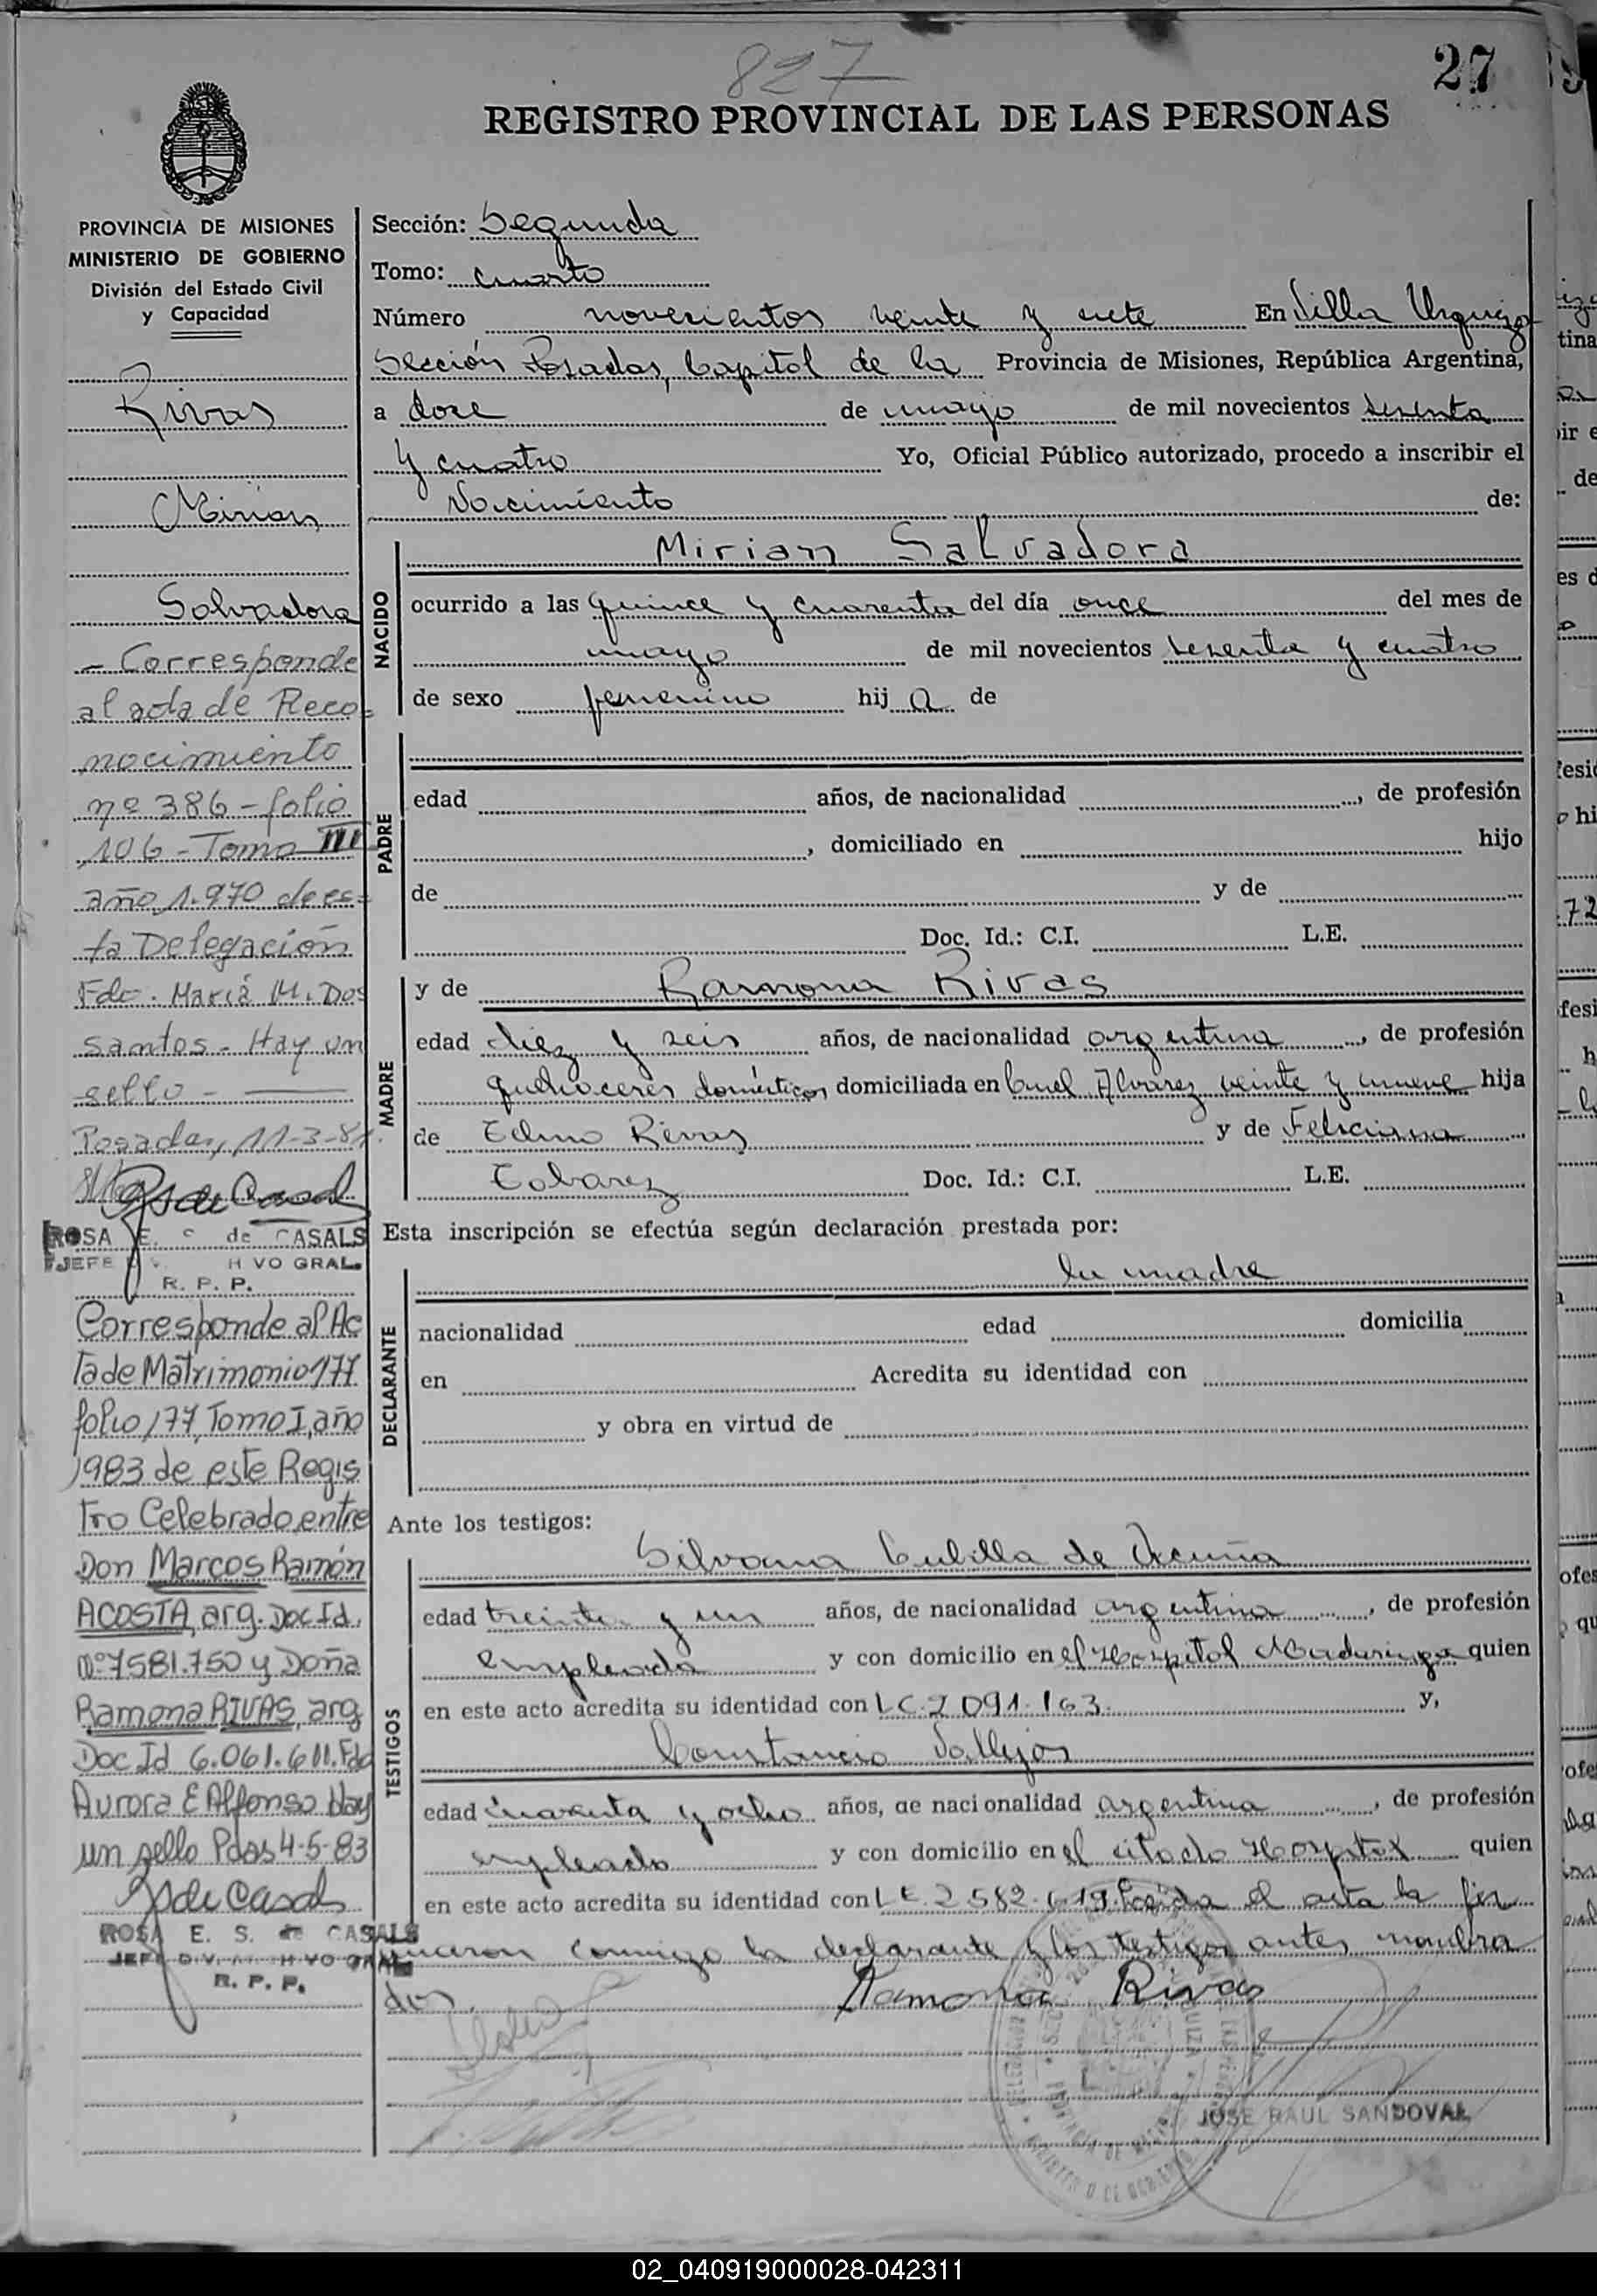 827
27
REGISTRO PROVINCIAL DE LAS PERSONAS
PROVINCIA DE MISIONES
MINISTERIO DE GOBIERNO
División del Estado Civil
y Capacidad
Rivas
Mirian
Salvadora
- Corresponde
al acta de Reco=
nocimiento
nº 386 - folio
106 - Tomo III
año 1.970 de es=
ta Delegación
Fdo. María M. Dos
santos - Hay un
sello -
Posadas, 11-3-81.
ROSA E. S de CASALS
JEFE H VO GRAL.
R. P. P.
Corresponde al Ac
ta de Matrimonio 177
folio 177, Tomo I, año
1983 de este Regis
tro Celebrado entre
Don Marcos Ramón
ACOSTA, arg. Doc Id.
Nº 7581.750 y Doña
Ramona RIVAS, arg
Doc Id 6.061.611. Fdo
Aurora E Alfonso Hay
un sello Pdas 4-5-83
RSdeCasals
ROSA E. S. de CASALS
JEFE DIV. H VO GRAL
R. P. P.
Sección: Segunda
Tomo: cuarto
Número novecientos veinte y siete En Villa Urquiza
Sección Posadas, Capital de la Provincia de Misiones, República Argentina,
a doce de mayo de mil novecientos sesenta
y cuatro Yo, Oficial Público autorizado, procedo a inscribir el
Nacimiento de:
NACIDO
Mirian Salvadora
ocurrido a las quince y cuarenta del día once del mes de
mayo de mil novecientos sesenta y cuatro
de sexo femenino hij a de
PADRE
edad años, de nacionalidad , de profesión
, domiciliado en hijo
de y de
Doc. Id.: C.I. L.E.
MADRE
y de Ramona Rivas
edad diez y seis años, de nacionalidad argentina , de profesión
quehaceres domésticos domiciliada en Cnel Alvarez veinte y nueve hija
de Elmo Rivas y de Feliciana
Tabarez Doc. Id.: C.I. L.E.
Esta inscripción se efectúa según declaración prestada por:
DECLARANTE
la madre
nacionalidad edad domicilia
en Acredita su identidad con
y obra en virtud de
Ante los testigos:
TESTIGOS
Silvana Cubilla de Acuña
edad treinta y un años, de nacionalidad argentina , de profesión
empleada y con domicilio en el Hospital Madariaga quien
en este acto acredita su identidad con LC. 2 091.163. y,
Constancio Vallejos
edad cuarenta y ocho años, de nacionalidad argentina , de profesión
empleado y con domicilio en el citado Hospital quien
en este acto acredita su identidad con LE. 2 582.619. Leida el acta la fir
maron conmigo la declarante y los testigos antes nombra
dos.
Ramona Rivas
JOSE RAUL SANDOVAL
02_040919000028-042311